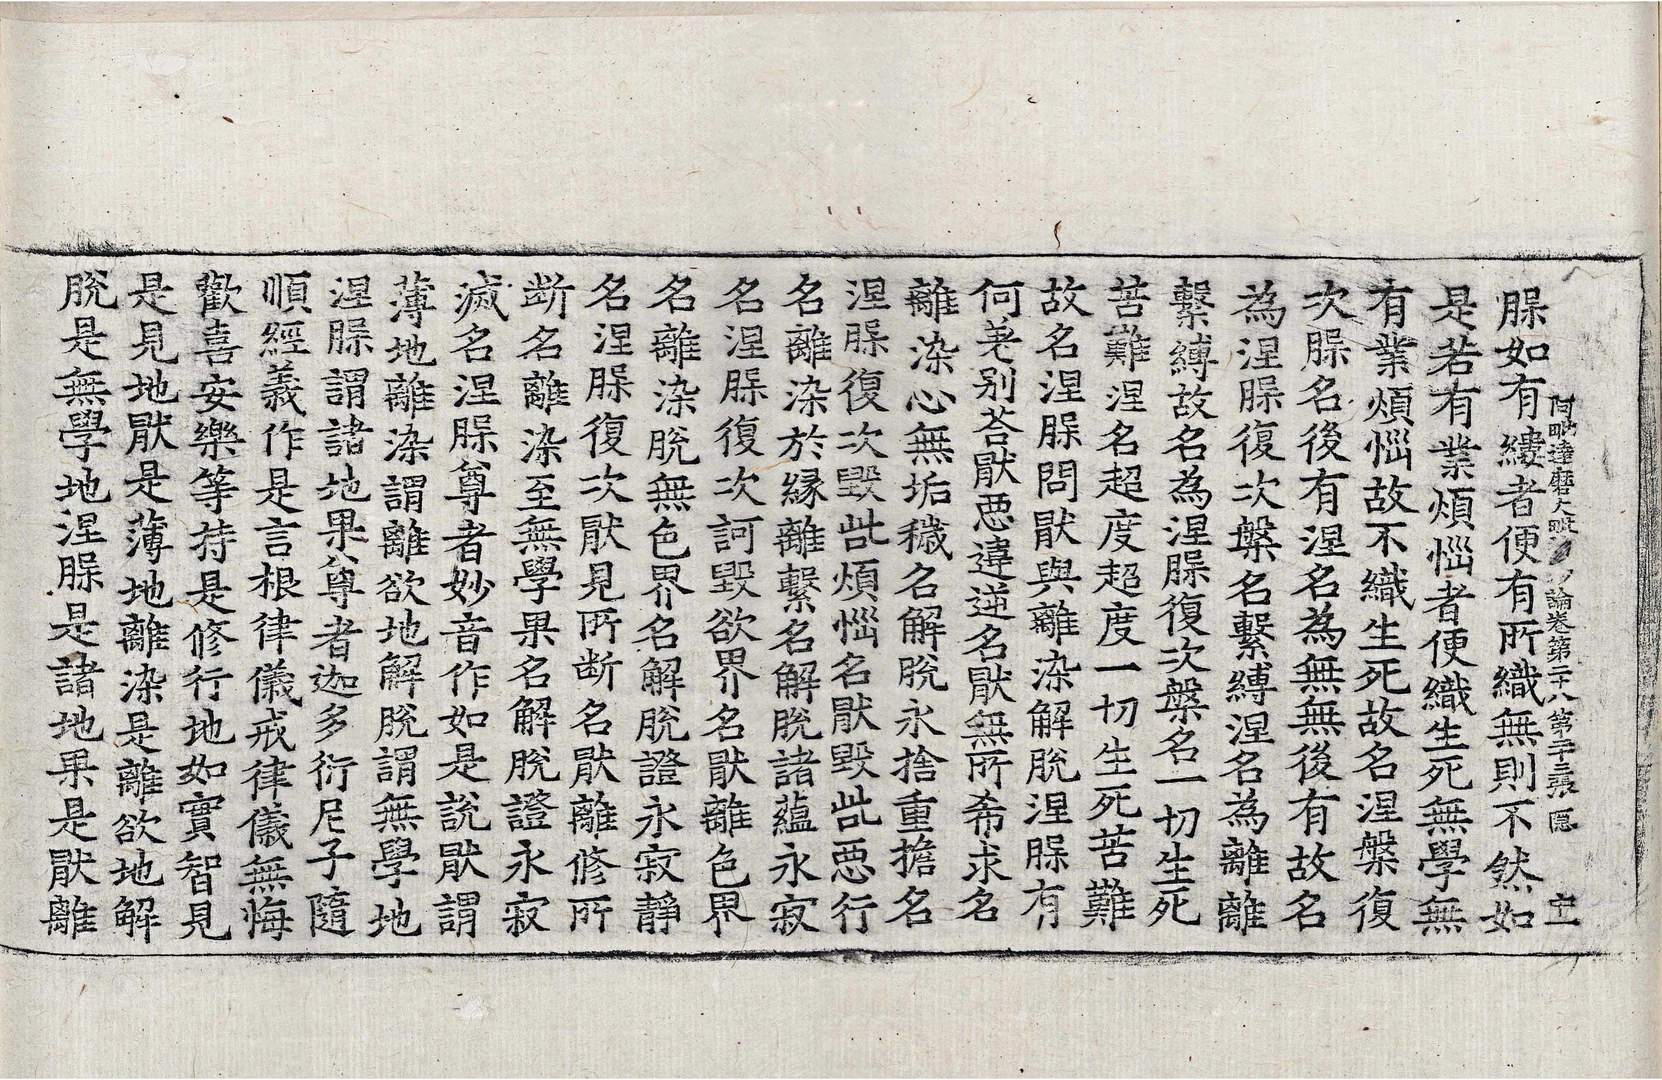 阿毗達磨大毗婆沙論卷第二十八第二十三張 隱
槃如有縷者便有所織無則不然如
是若有業煩惱者便織生死無學無
有業煩惱故不織生死故名涅槃復
次槃名後有涅名為無無後有故名
為涅槃復次槃名繫縛涅名為離離
繫縛故名為涅槃復次槃名一切生死
苦難涅名超度超度一切生死苦難
故名涅槃問猒與離染解脫涅槃有
何差別荅猒惡違逆名猒無所希求名
離染心無垢穢名解脫永捨重擔名
涅槃復次毀呰煩惱名猒毀呰惡行
名離染於緣離繫名解脫諸蘊永寂
名涅槃復次訶毀欲界名猒離色界
名離染脫無色界名解脫證永寂靜
名涅槃復次猒見所断名猒離修所
断名離染至無學果名解脫證永寂
滅名涅槃尊者妙音作如是說猒謂
薄地離染謂離欲地解脫謂無學地
涅槃謂諸地果尊者迦多衍尼子隨
順經義作是言根律儀戒律儀無悔
歡喜安樂等持是修行地如實智見
是見地猒是薄地離染是離欲地解
脫是無學地涅槃是諸地果是猒離